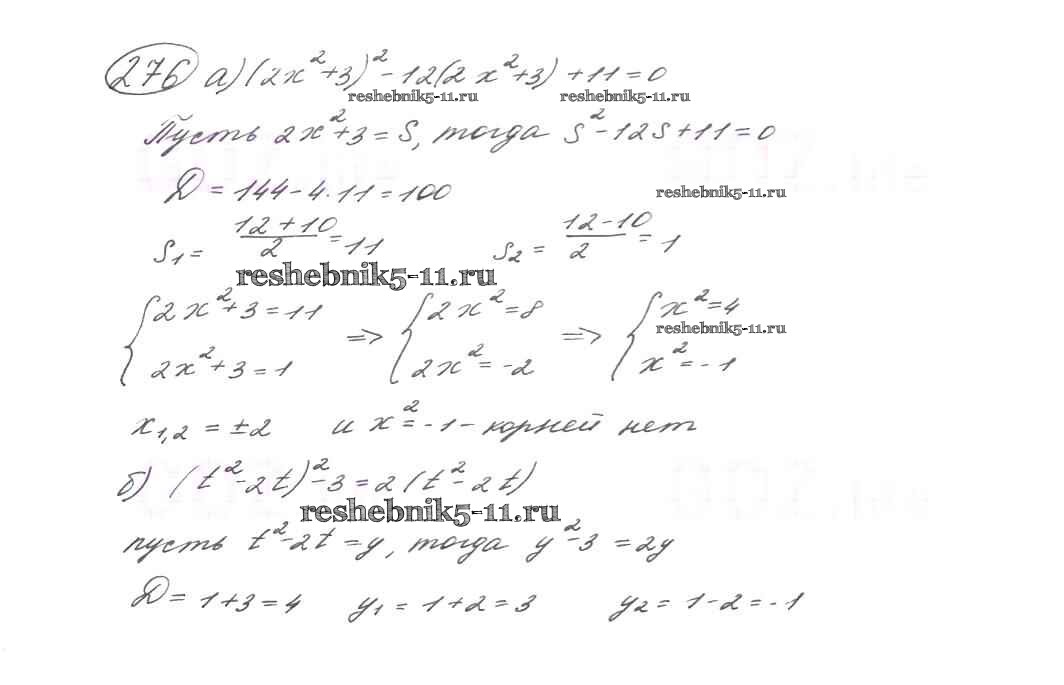 276 а) (2x²+3)² - 12(2x²+3) + 11 = 0
reshebnik5-11.ru reshebnik5-11.ru
Пусть 2x²+3 = S, тогда S² - 12S + 11 = 0
D = 144 - 4·11 = 100 reshebnik5-11.ru
S₁ = (12+10)/2 = 11 S₂ = (12-10)/2 = 1
reshebnik5-11.ru
{2x²+3=11 => {2x²=8 => {x²=4
reshebnik5-11.ru
2x²+3=1 2x²=-2 x²=-1
x₁,₂ = ±2 и x² = -1 - корней нет
б) (t²-2t)² - 3 = 2(t²-2t)
reshebnik5-11.ru
пусть t²-2t = y, тогда y²-3 = 2y
D = 1+3 = 4 y₁ = 1+2 = 3 y₂ = 1-2 = -1